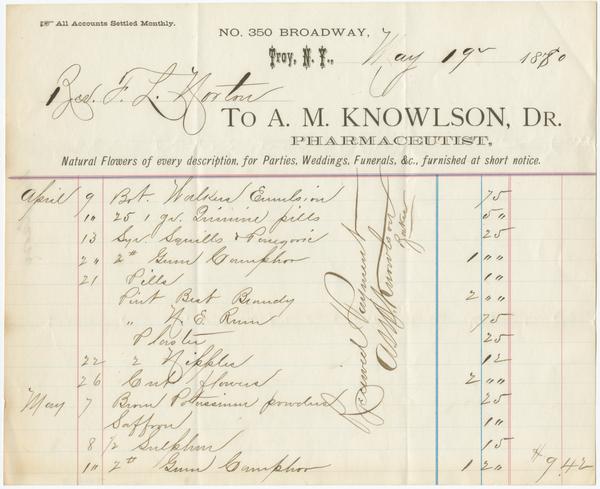 ☞ All Accounts Settled Monthly.
NO. 350 BROADWAY,
Troy, N. Y., May 19" 1880
Rev. F. L. Norton
TO A. M. KNOWLSON, DR.
PHARMACEUTIST,
Natural Flowers of every description, for Parties, Weddings, Funerals, &c., furnished at short notice.
April 9 Bot. Walkers Emulsion 75
1" 25 1 gr. Quinine pills 5"
13 Syr. Squills & Paregoric 25
2" 2 # Gum Camphor 1 ""
21 Pills 1"
Pint Best Brandy 2 ""
" N. E. Rum 75
Plaster 25
22 2 Nipples 12
26 Cut flowers 2 ""
May 7 Brom Potassium powders 25
Saffron 1"
8 1/2 Sulphur 15
1" 2 # Gum Camphor 1 2" $9.42
Received Payment
A M Knowlson